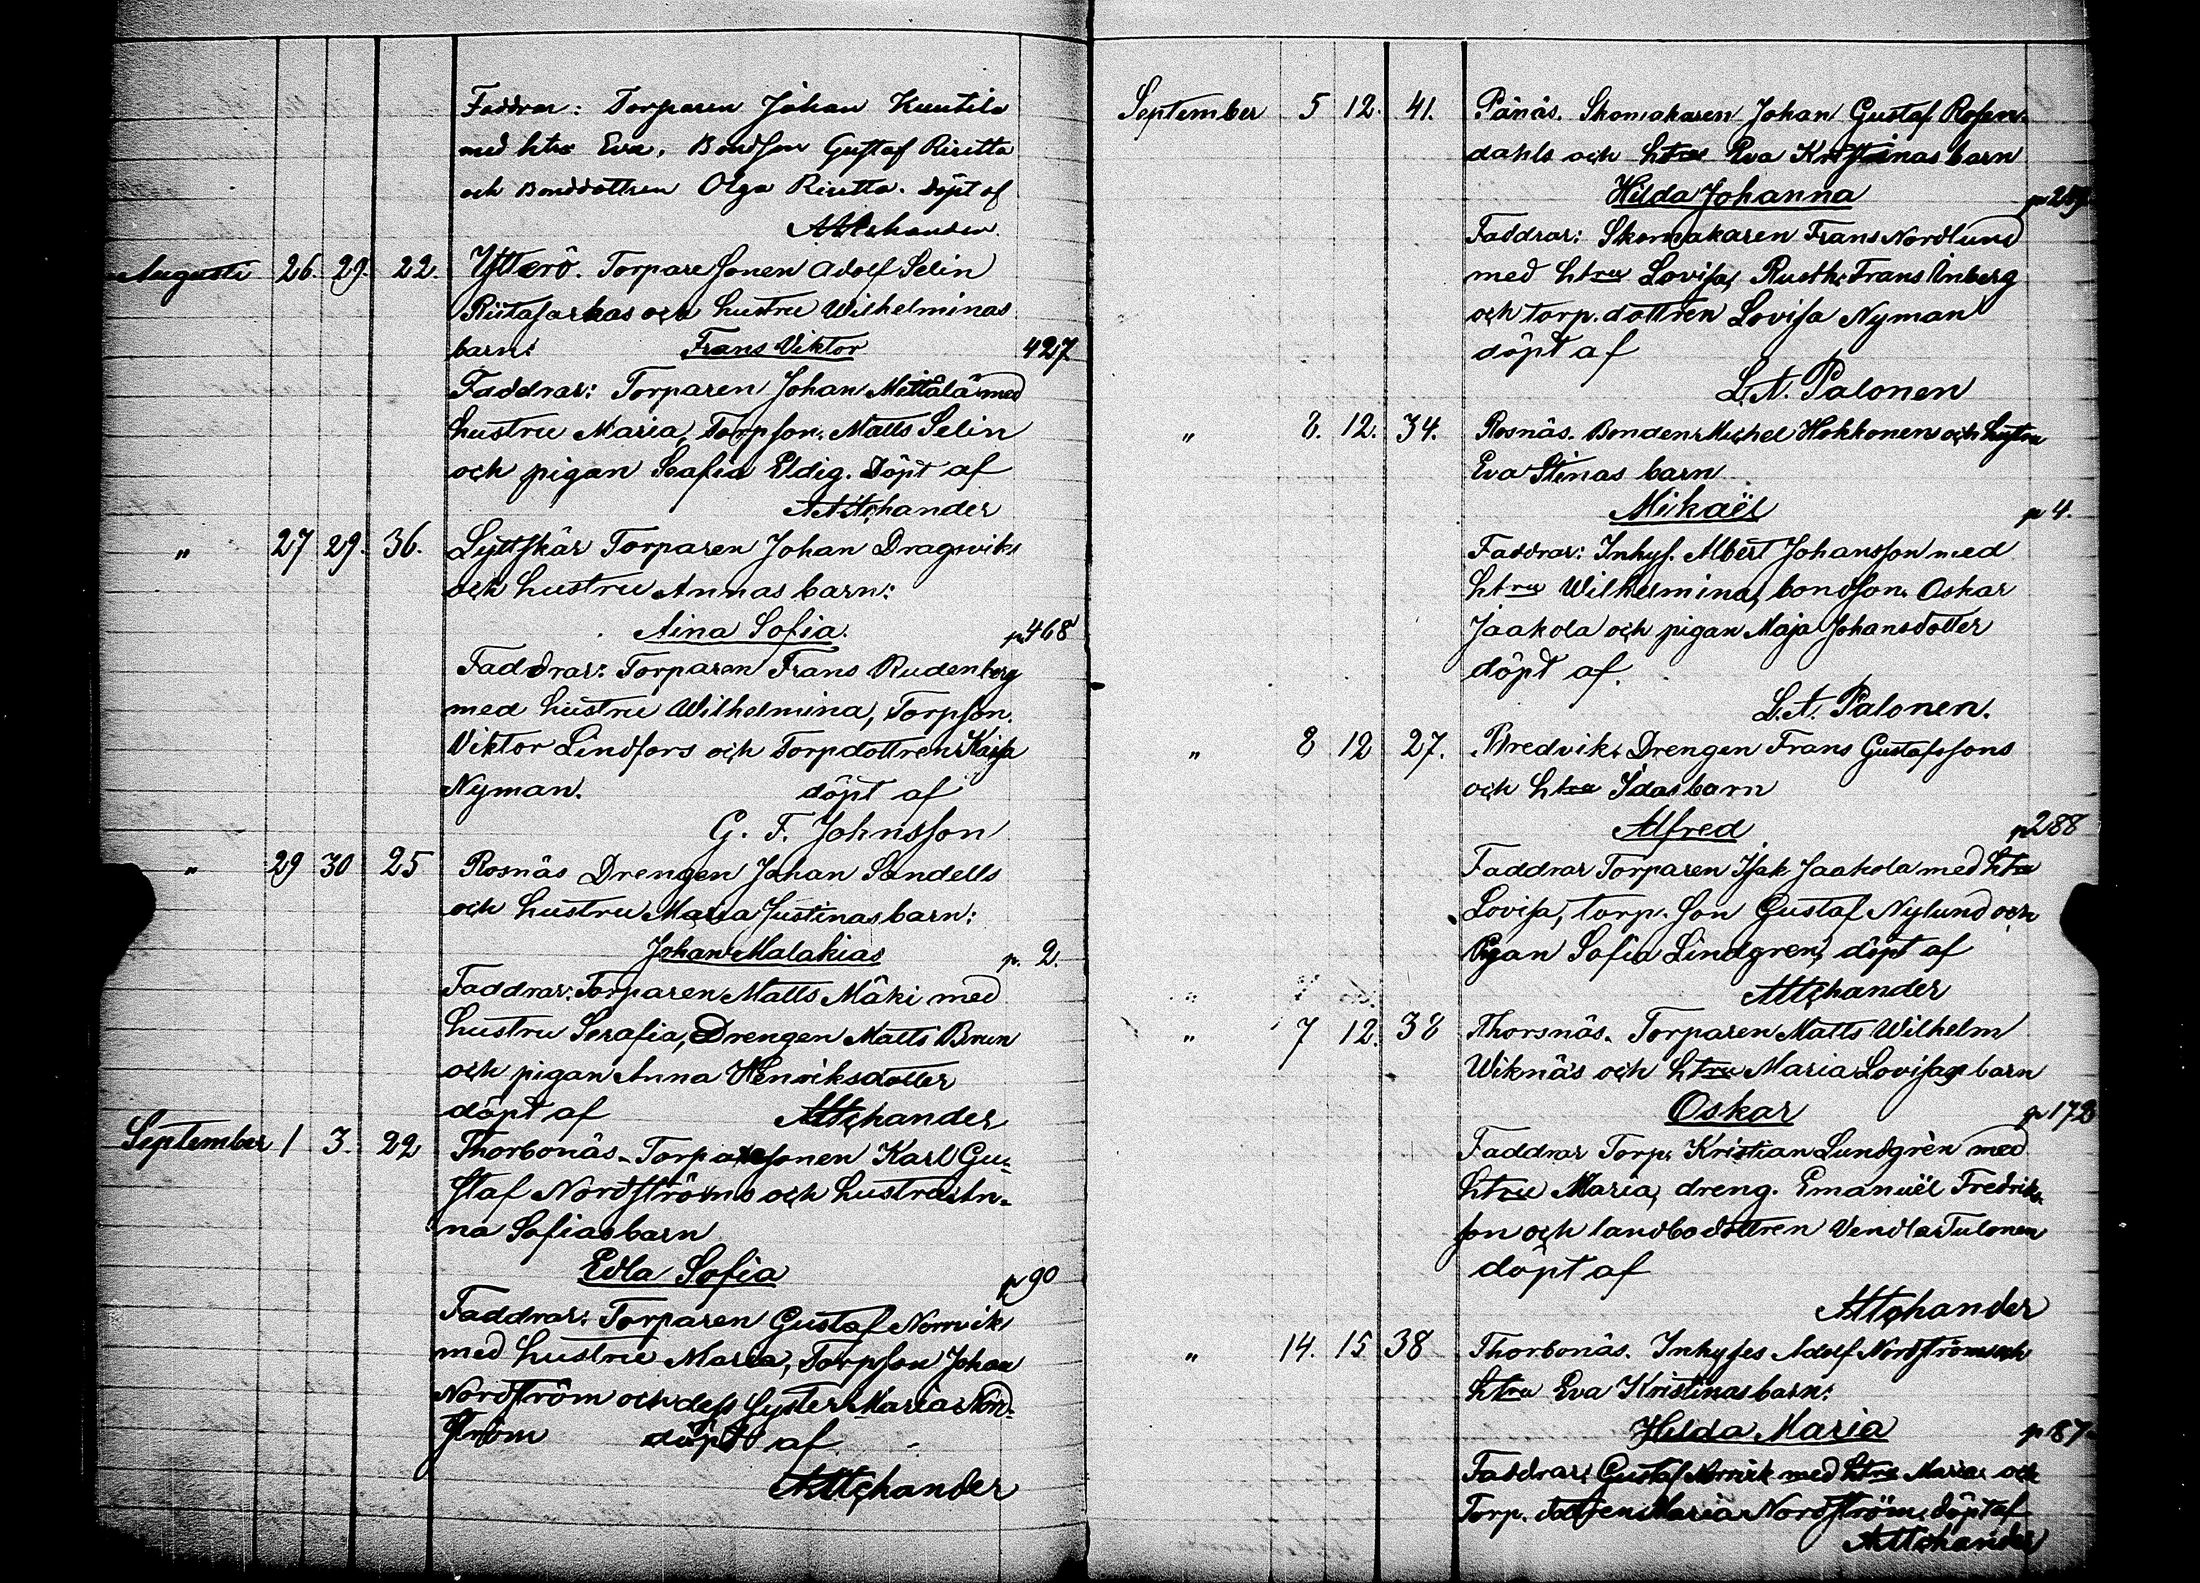 Faddrar: Torparen Johan Kuutila
med htru Eva, Bondson Gustaf Riutta
och Bonddottren Olga Riutta. Döpt af
Augusti 26. 29. 22. Ytterö. Torparesonen Adolf Selin
och hustru Wilhelminas
barn: Frans Viktor 427
Faddrar: Torparen Johan Mettälä med
hustru Maria, Torpson. Matts Selin
och pigan Seafia Eldig. Döpt af
" 27 29. 36. Lyttskär Torparen Johan Dragsviks
och hustru Annas barn:
Aina Sofia. p 468
Faddrar: Torparen Frans Rudenberg
med hustru Wilhelmina, Torpson.
Viktor Lindfors och Torpdottren Kajsa
Nyman. döpt af
G. F. Johnsson
" 29 30 25 Rosnäs Drengen Johan Sandells
och hustru Maria Justinas barn:
Johan Malakias p. 2.
Faddrar: Torparen Matts Mäki med
hustru Serafia, Drengen Matts Brun
och pigan Anna Henriksdotter
döpt af
September 1 3. 22 Thorbonäs. Torparesonen Karl Gu-
staf Nordströms och hustru An-
na Sofias barn
Edla Sofia p 90
Faddrar: Torparen Gustaf Norrvik
med hustru Maria, Torpson Johan
Nordström och dess syster Maria Nord-
ström döpt af
September 5 12. 41. Pånäs. Skomakaren Johan Gustaf Rosen-
dahls och htrus Eva Kristinas barn
Hilda Johanna
Faddrar: Skomakaren Frans Nordlund
med htru Lovisa, Rusth. Frans Enberg
och torp. dottren Lovisa Nyman
döpt af
L. A. Palonen
" 8. 12. 34. Rosnäs. Bonden Michel Hokkonens och hustru
Eva Stinas barn
Mikaël p 4.
Faddrar: Inhys. Albert Johansson med
htru Wilhelmina, bondson. Oskar
Jaakola och pigan Maja Johansdotter
döpt af.
L. A. Palonen.
" 8 12 27. Bredvik. Drengen Frans Gustafssons
och htru Idas barn
Alfred p 288
Faddrar Torparen Isak Jaakola med htru
Lovisa, torp. son Gustaf Nylund och
Pigan Sofia Lindgren, döpt af
" 7 12. 38 Thorsnäs. Torparen Matts Wilhelm
Wiknäs och htru Maria Lovisas barn
Oskar p 178
Faddrar Torp. Kristian Lundgrén med
htru Maria, dreng. Emanuël Fredriks-
son och landbodottren Vendla Tulonen
döpt af
" 14. 15 38 Thorbonäs. Inhyses Adolf Nordströms och
htru Eva Kristinas barn:
Hilda Maria p 87.
Faddrar: Gustaf Norrvik med htru Maria och
Torp. dottren Maria Nordström, döpt af